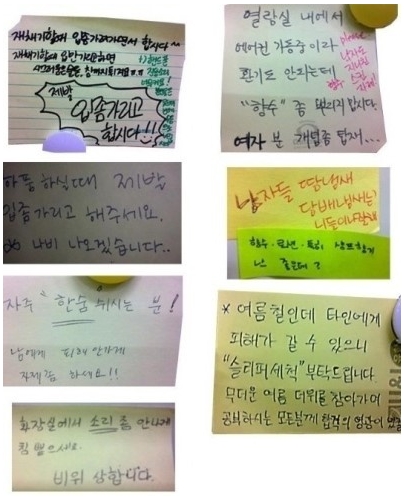 재채기할때 입좀가려가면서 합시다
입좀가리고
합시다!!
하품 하실때 제발
입좀가리고 해주세요.
나비 나오겠습니다..
자주 "한숨 쉬시는 분!
남에게 피해안가게
자제좀 하세요!!
화장실에서 소리 좀 안나게
침 뱉으세요.
비위 상합니다.
열람실 내에서
에어컨 가동중이라
환기도 안되는데
"향수" 좀 뿌리지 맙시다.
여자 분 개념좀 탑재...
남자들 땀냄새
담배냄새는?
* 여름철인데 타인에게
피해가 갈 수 있으니
"슬리퍼세척" 부탁드립니다.
무더운 여름 더위를 참아가며
공부하시는 모든분께 합격의 영광이